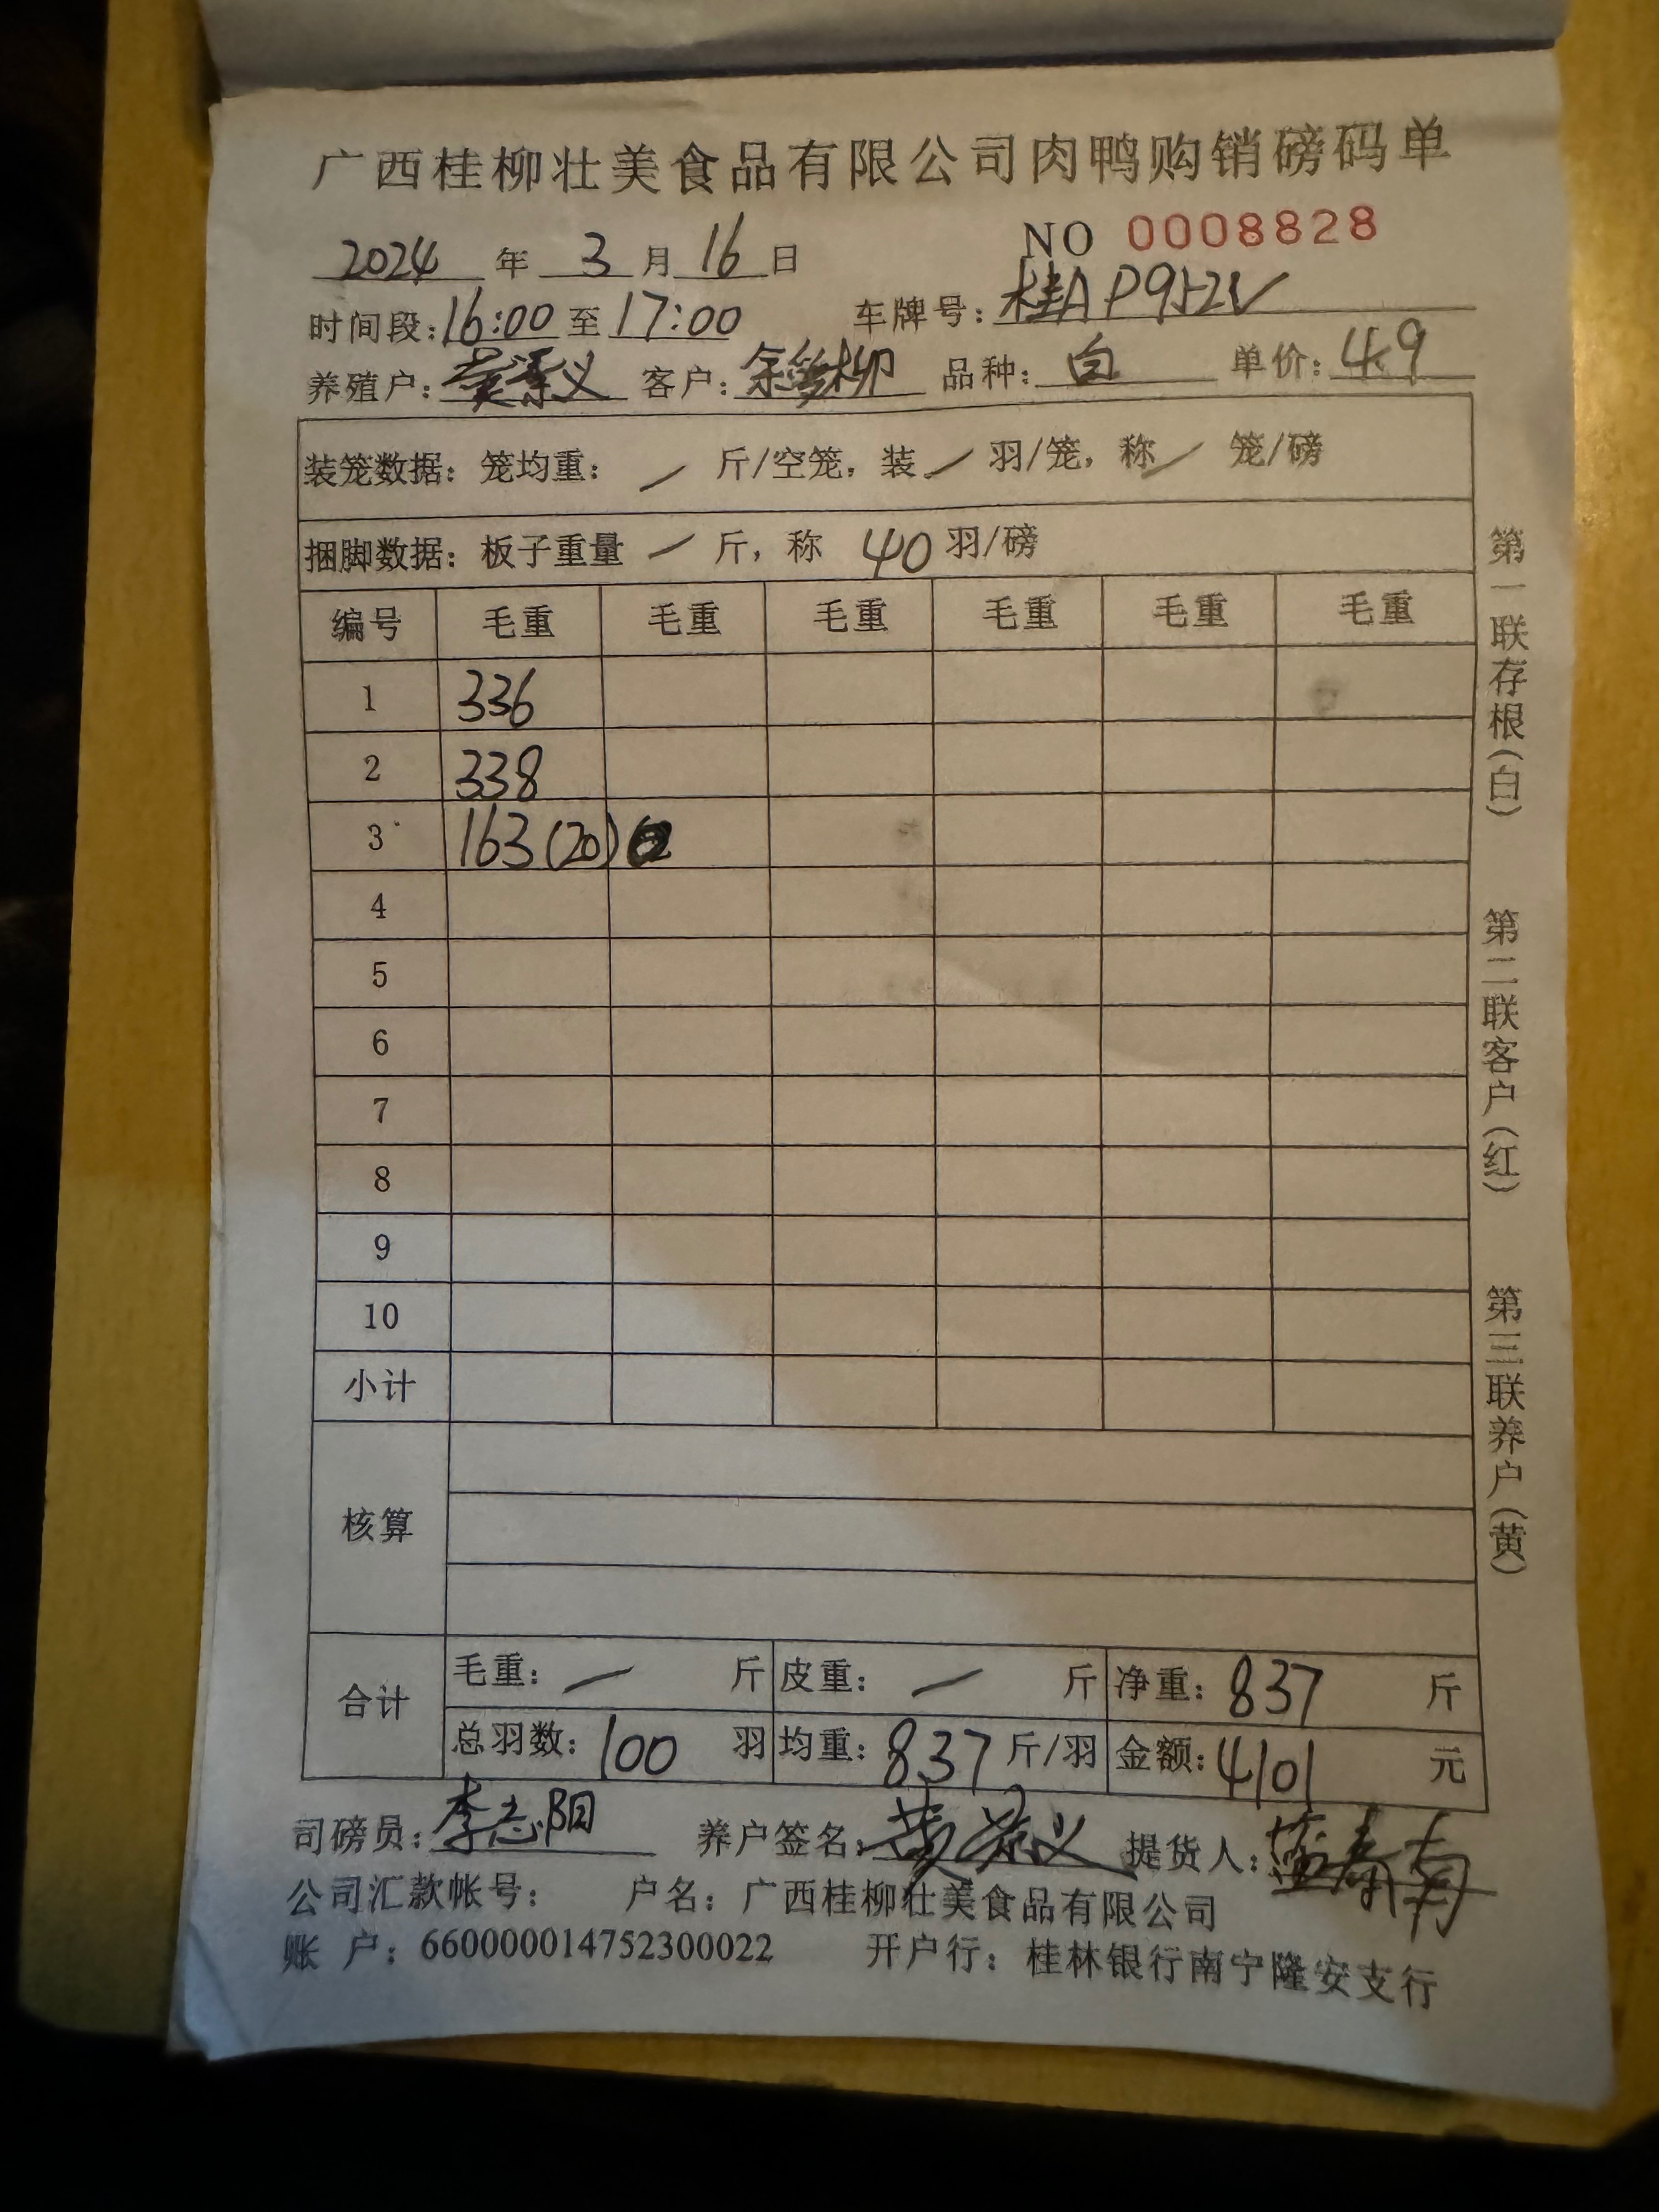 广西桂柳壮美食品有限公司肉鸭购销磅码单
NO 0008828
2024 年 3 月 16 日
时间段:16:00 至 17:00 车牌号:桂AP952V
养殖户: 客户: 品种: 白 单价: 4.9
装笼数据: 笼均重: / 斤/空笼, 装 / 羽/笼, 称 / 笼/磅
捆脚数据: 板子重量 / 斤, 称 40 羽/磅
编号 毛重 毛重 毛重 毛重 毛重 毛重
1 336
2 338
3 163(20)
4
5
6
7
8
9
10
小计
核算
合计 毛重: / 斤 皮重: / 斤 净重: 837 斤
总羽数: 100 羽 均重: 837 斤/羽 金额: 4101 元
司磅员: 李志阳 养户签名: 提货人:
公司汇款帐号: 户名: 广西桂柳壮美食品有限公司
账 户: 660000014752300022 开户行: 桂林银行南宁隆安支行
第一联存根(白) 第二联客户(红) 第三联养户(黄)